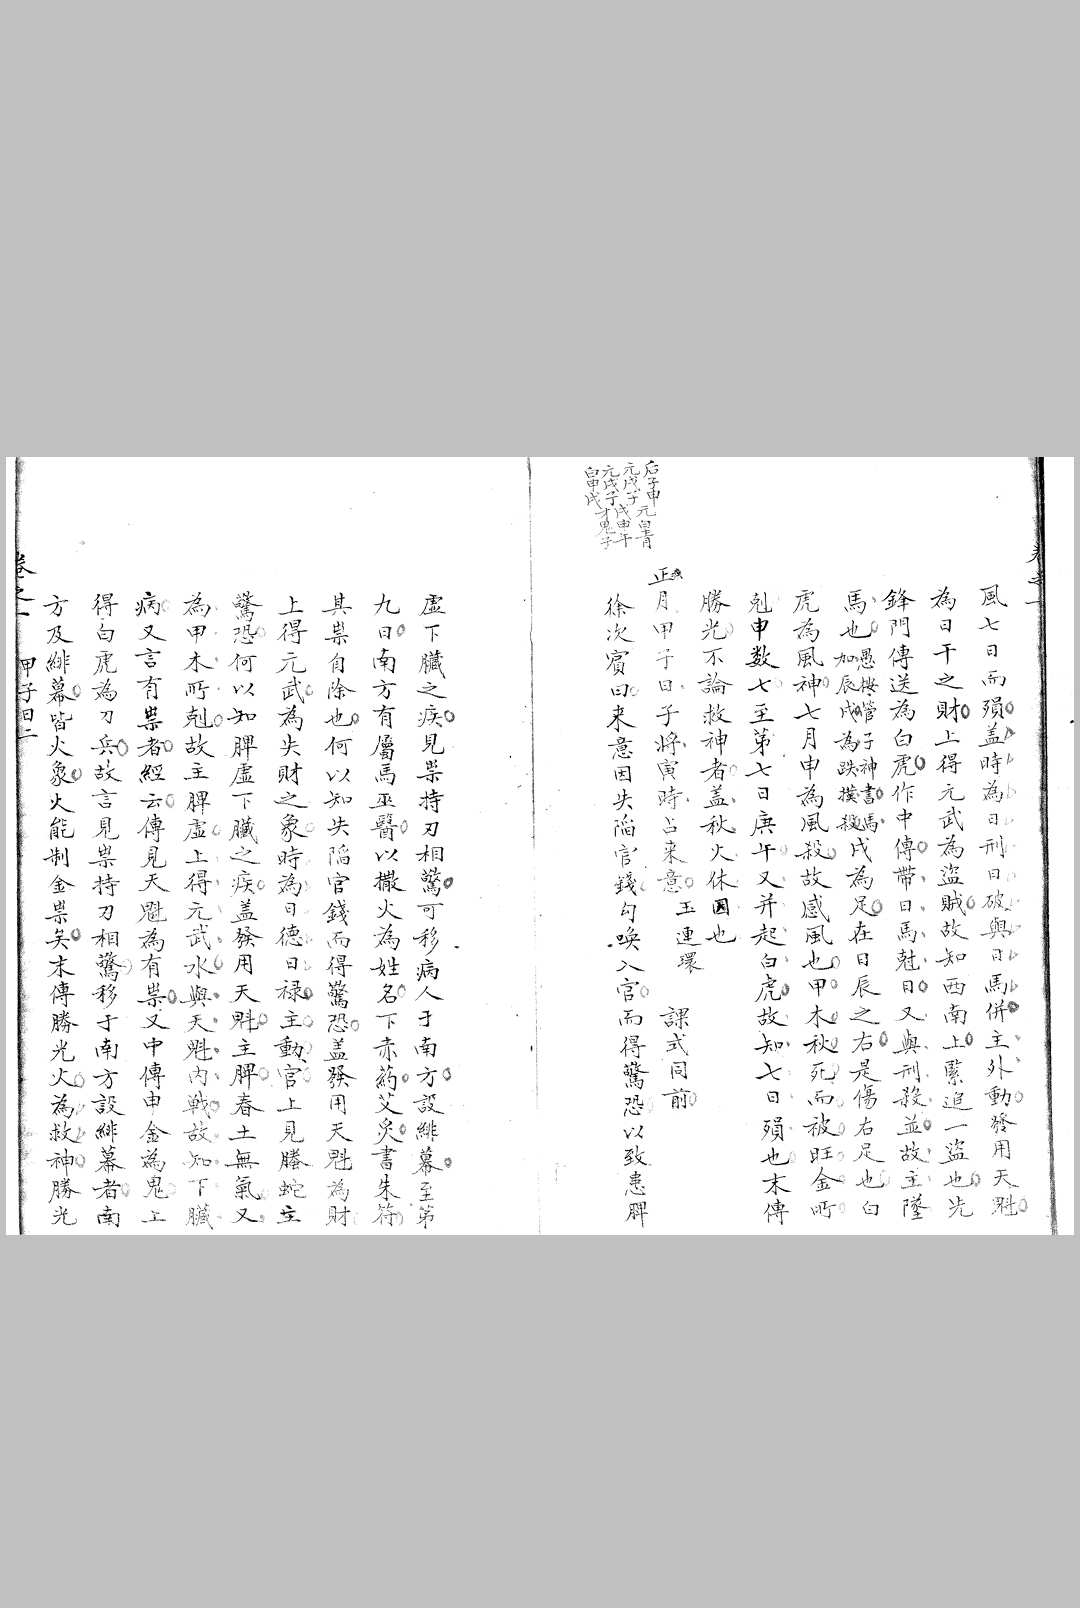 卷之一
風七日而殞盖時為日刑日破與日馬併主外動發用天魁
為日干之財上得元武為盗賊故知西南上緊追一盗也先
鋒門傳送為白虎作中傳帶日馬尅日又與刑殺並故主墜
馬也愚按管子神書馬加辰戌為跌撲殺戌為足在日辰之右是傷右足也白
虎為風神七月申為風殺故感風也甲木秋死而被旺金所
剋申数七至第七日庚午又并起白虎故知七日殞也末傳
勝光不論救神者盖秋火休囚也
正月甲子日子將寅時占来意 玉連環 課式同前
后子申元白青
元戌子戌申午
元戌子才鬼子
白申戌
徐次賓曰来意因失陷官錢勾喚入官而得驚恐以致患脾
虚下臟之疾見祟持刃相驚可移病人于南方設緋幕至第
九日南方有屬馬巫醫以撒火為姓名下赤药艾灸書朱符
其祟自除也何以知失陷官錢而得驚恐盖發用天魁為財
上得元武為失財之象時為日德日禄主動官上見螣蛇主
驚恐何以知脾虚下臟之疾盖發用天魁主脾春土無氣又
為甲木所剋故主脾虚上得元武水與天魁內戰故知下臟
病又言有祟者經云傳見天魁為有祟又中傳申金為鬼上
得白虎為刀兵故言見祟持刀相驚移于南方設緋幕者南
方及緋幕皆火象火能制金祟矣末傳勝光火為救神勝光
卷之一 甲子日二